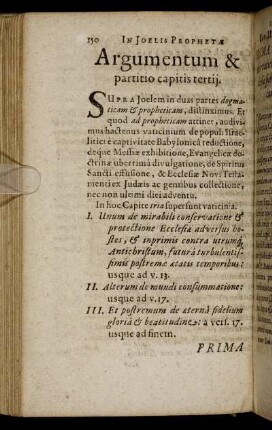 150 IN JOELIS PROPHETÆ
Argumentum &
partitio capitis tertij.
SUPRA Joelem in duas partes dogma-
ticam & propheticam, distinximus. Et
quod ad propheticam attinet, audivi-
mus hactenus vaticinium de populi Israë-
litici è captivitate Babylonicâ reductione,
deque Messiæ exhibitione, Evangelicæ do-
ctrinæ uberrimâ divulgatione, de Spiritus
Sancti effusione, & Ecclesiæ Novi Testa-
menti ex Judæis ac gentibus collectione,
nec non ultimi diei adventu.
In hoc Capite tria supersunt vaticinia.
I. Unum de mirabili conservatione &
protectione Ecclesiæ adversus ho-
stes, & inprimis contra utrumq́;
Antichristum, futurâ turbulentis-
simis postremæ ætatis temporibus:
usque ad v. 13.
II. Alterum de mundi consummatione:
usque ad v. 17.
III. Et postremum de æternâ fidelium
gloriâ & beatitudine: à vers. 17.
usque ad finem.
PRIMA